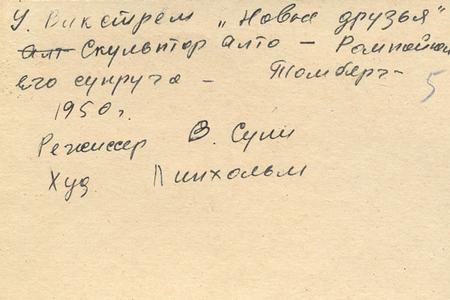 У. Викстрем „Новые друзья"
Алт Скульптор Алто — Рампайнен
его супруга — Томберг
5
1950 г.
Режиссер В. Суни
Худ Линхольм